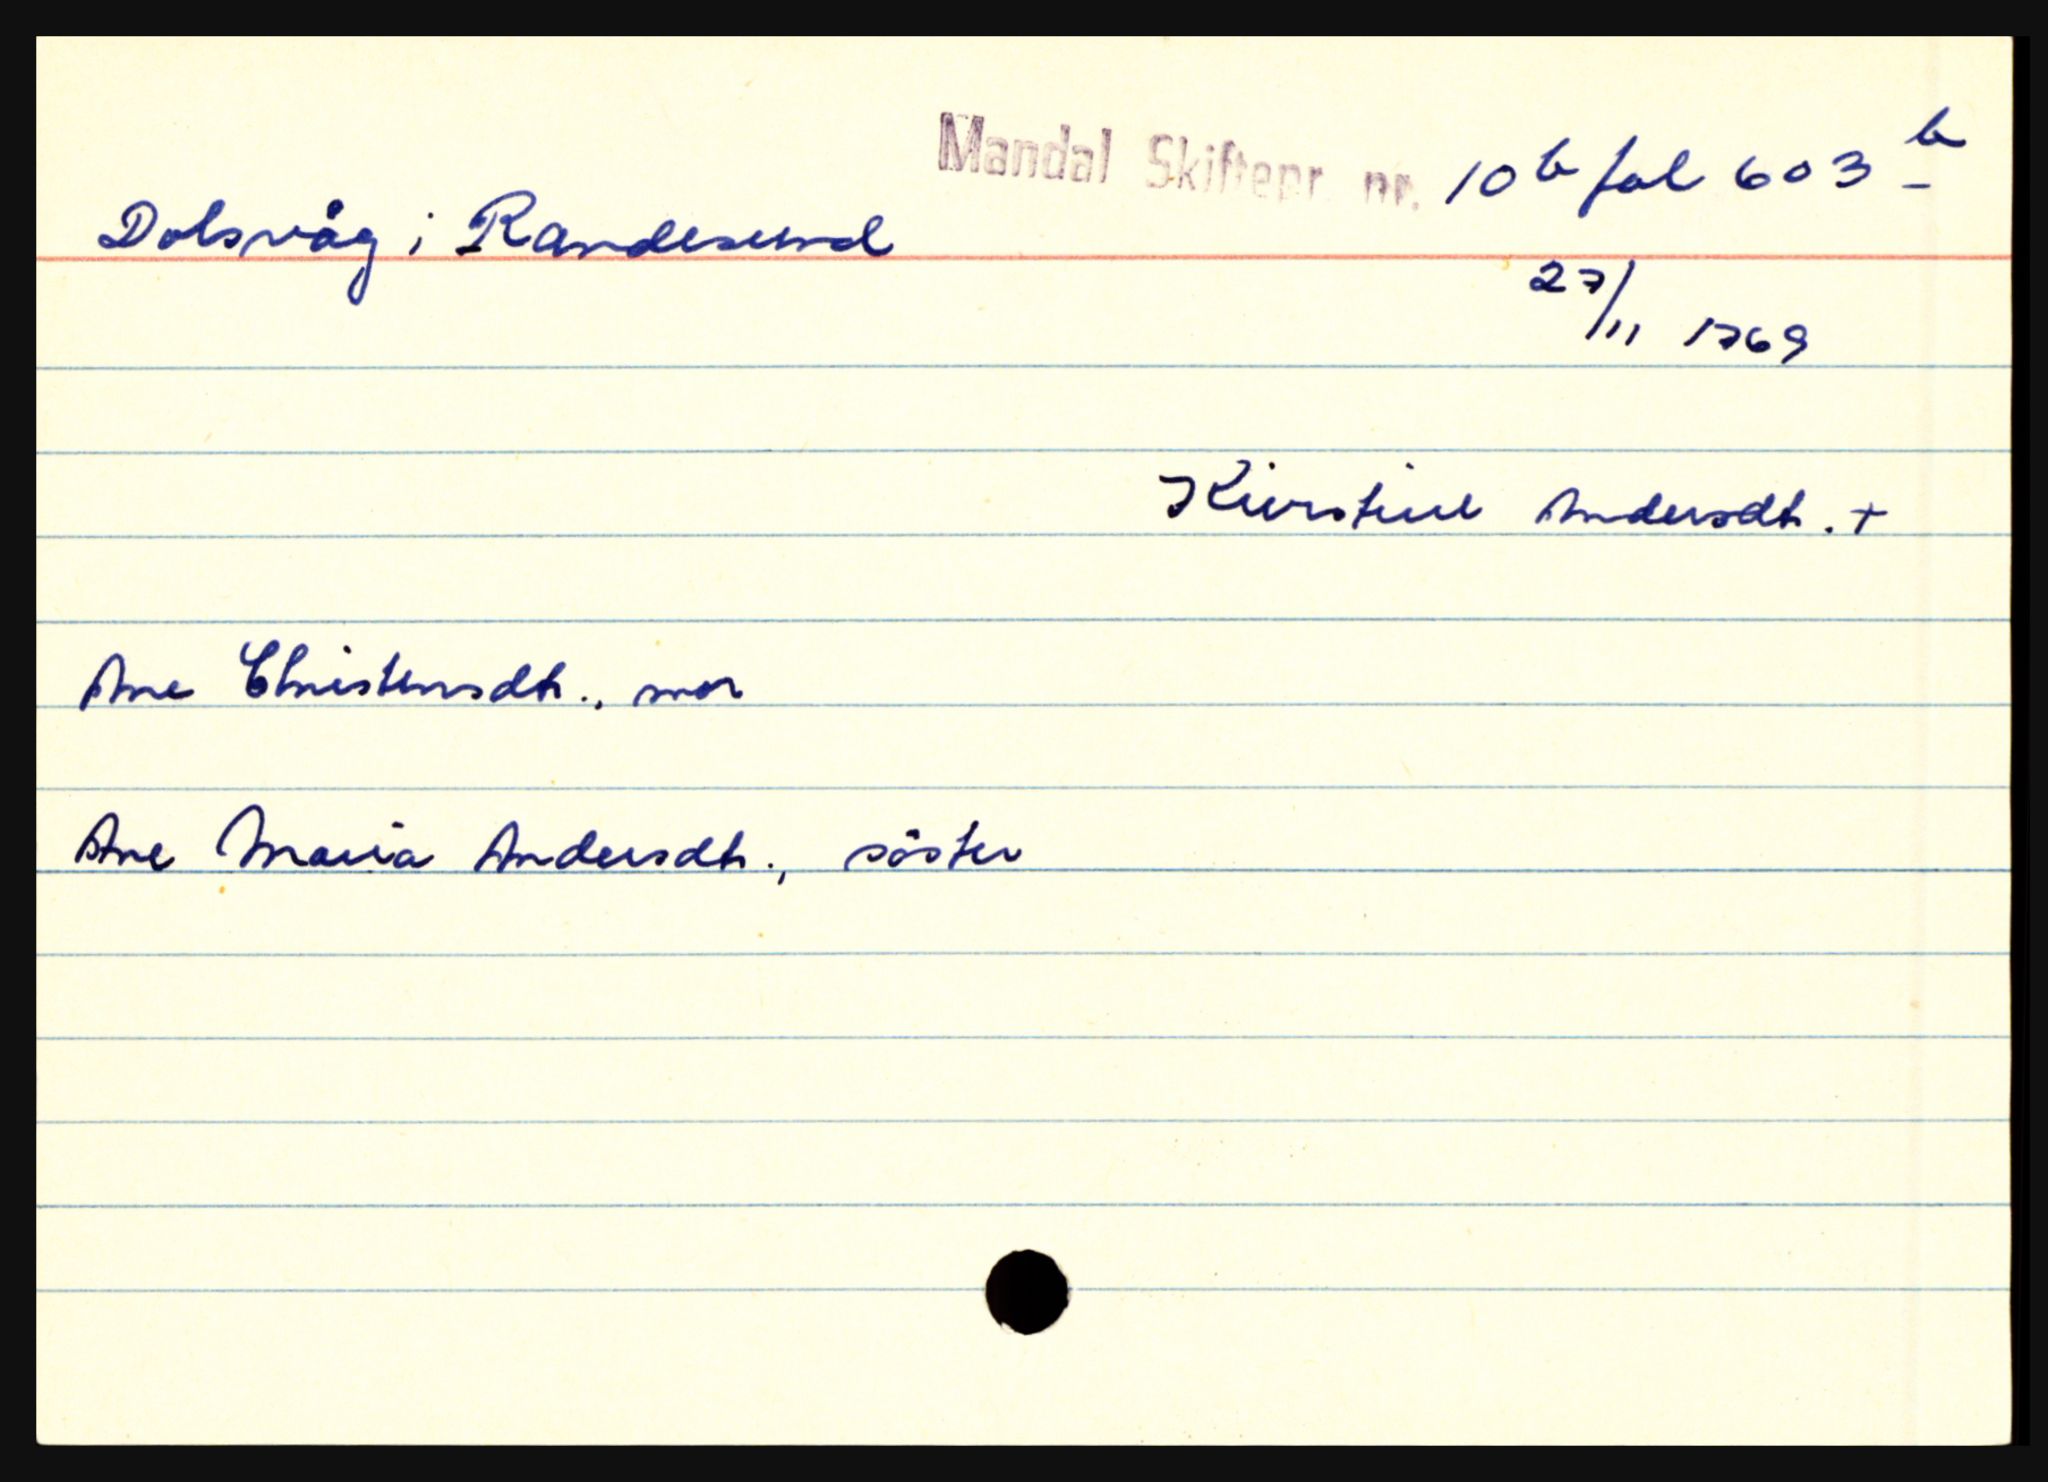 Mandal Skiftepr. nr. 10 b fol 603 b
Dolsvåg i Randesund
27/11 1769
Kierstine Andersdtr. +
Ane Christensdtr., mor
Ane Maria Andersdtr., söster